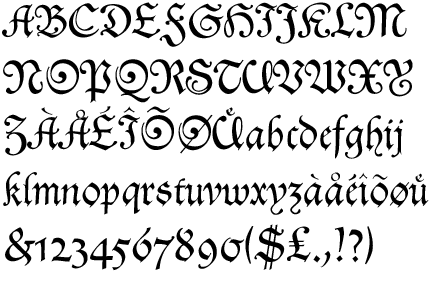 ABCDEFGHIJKLM
NOPQRSTUVWXY
ZÀÅÉÎÕØŮabcdefghij
klmnopqrstuvwxyzàåéîõøů
&1234567890($£.,!?)